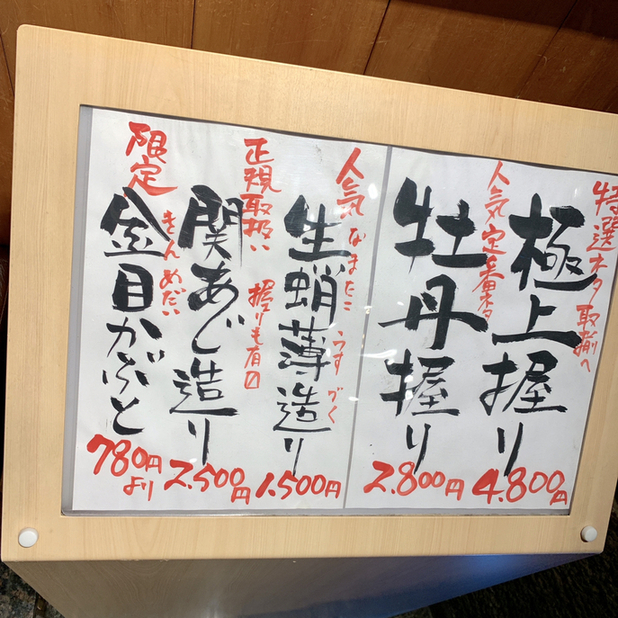 特選ネタ取揃へ
極上握り
4.800円
人気定番ネタ
牡丹握り
2.800円
人気
なまたこ うすづくり
生蛸薄造り
1.500円
正規取扱い
握りも有り
関あじ造り
2.500円
限定
きんめだい
金目かぶと
780円より